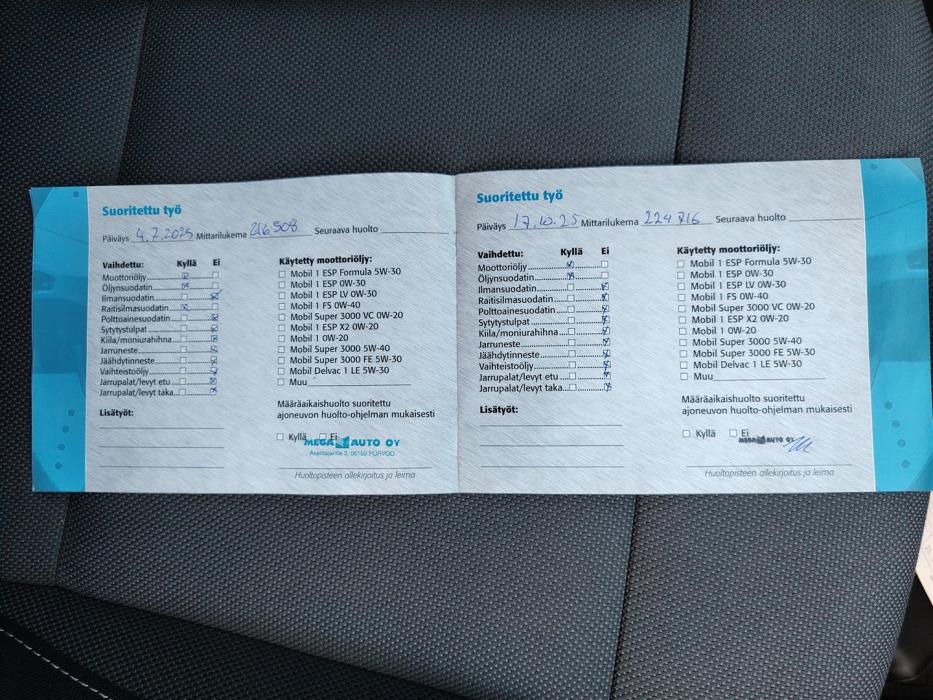 Suoritettu työ
Päiväys 4.7.2025 Mittarilukema 216 508 Seuraava huolto
Vaihdettu: Kyllä Ei
Moottoriöljy
Öljynsuodatin
Ilmansuodatin
Raitisilmasuodatin
Polttoainesuodatin
Sytytystulpat
Kiila/moniurahihna
Jarruneste
Jäähdytinneste
Vaihteistoöljy
Jarrupalat/levyt etu
Jarrupalat/levyt taka
Lisätyöt:
Käytetty moottoriöljy:
Mobil 1 ESP Formula 5W-30
Mobil 1 ESP 0W-30
Mobil 1 ESP LV 0W-30
Mobil 1 FS 0W-40
Mobil Super 3000 VC 0W-20
Mobil 1 ESP X2 0W-20
Mobil 1 0W-20
Mobil Super 3000 5W-40
Mobil Super 3000 FE 5W-30
Mobil Delvac 1 LE 5W-30
Muu
Määräaikaishuolto suoritettu
ajoneuvon huolto-ohjelman mukaisesti
Kyllä Ei
MEGA AUTO OY
Asentajantie 3, 06150 PORVOO
Huoltopisteen allekirjoitus ja leima
Suoritettu työ
Päiväys 17.10.25 Mittarilukema 224 716 Seuraava huolto
Vaihdettu: Kyllä Ei
Moottoriöljy
Öljynsuodatin
Ilmansuodatin
Raitisilmasuodatin
Polttoainesuodatin
Sytytystulpat
Kiila/moniurahihna
Jarruneste
Jäähdytinneste
Vaihteistoöljy
Jarrupalat/levyt etu
Jarrupalat/levyt taka
Lisätyöt:
Käytetty moottoriöljy:
Mobil 1 ESP Formula 5W-30
Mobil 1 ESP 0W-30
Mobil 1 ESP LV 0W-30
Mobil 1 FS 0W-40
Mobil Super 3000 VC 0W-20
Mobil 1 ESP X2 0W-20
Mobil 1 0W-20
Mobil Super 3000 5W-40
Mobil Super 3000 FE 5W-30
Mobil Delvac 1 LE 5W-30
Muu
Määräaikaishuolto suoritettu
ajoneuvon huolto-ohjelman mukaisesti
Kyllä Ei
MEGA AUTO OY
Huoltopisteen allekirjoitus ja leima